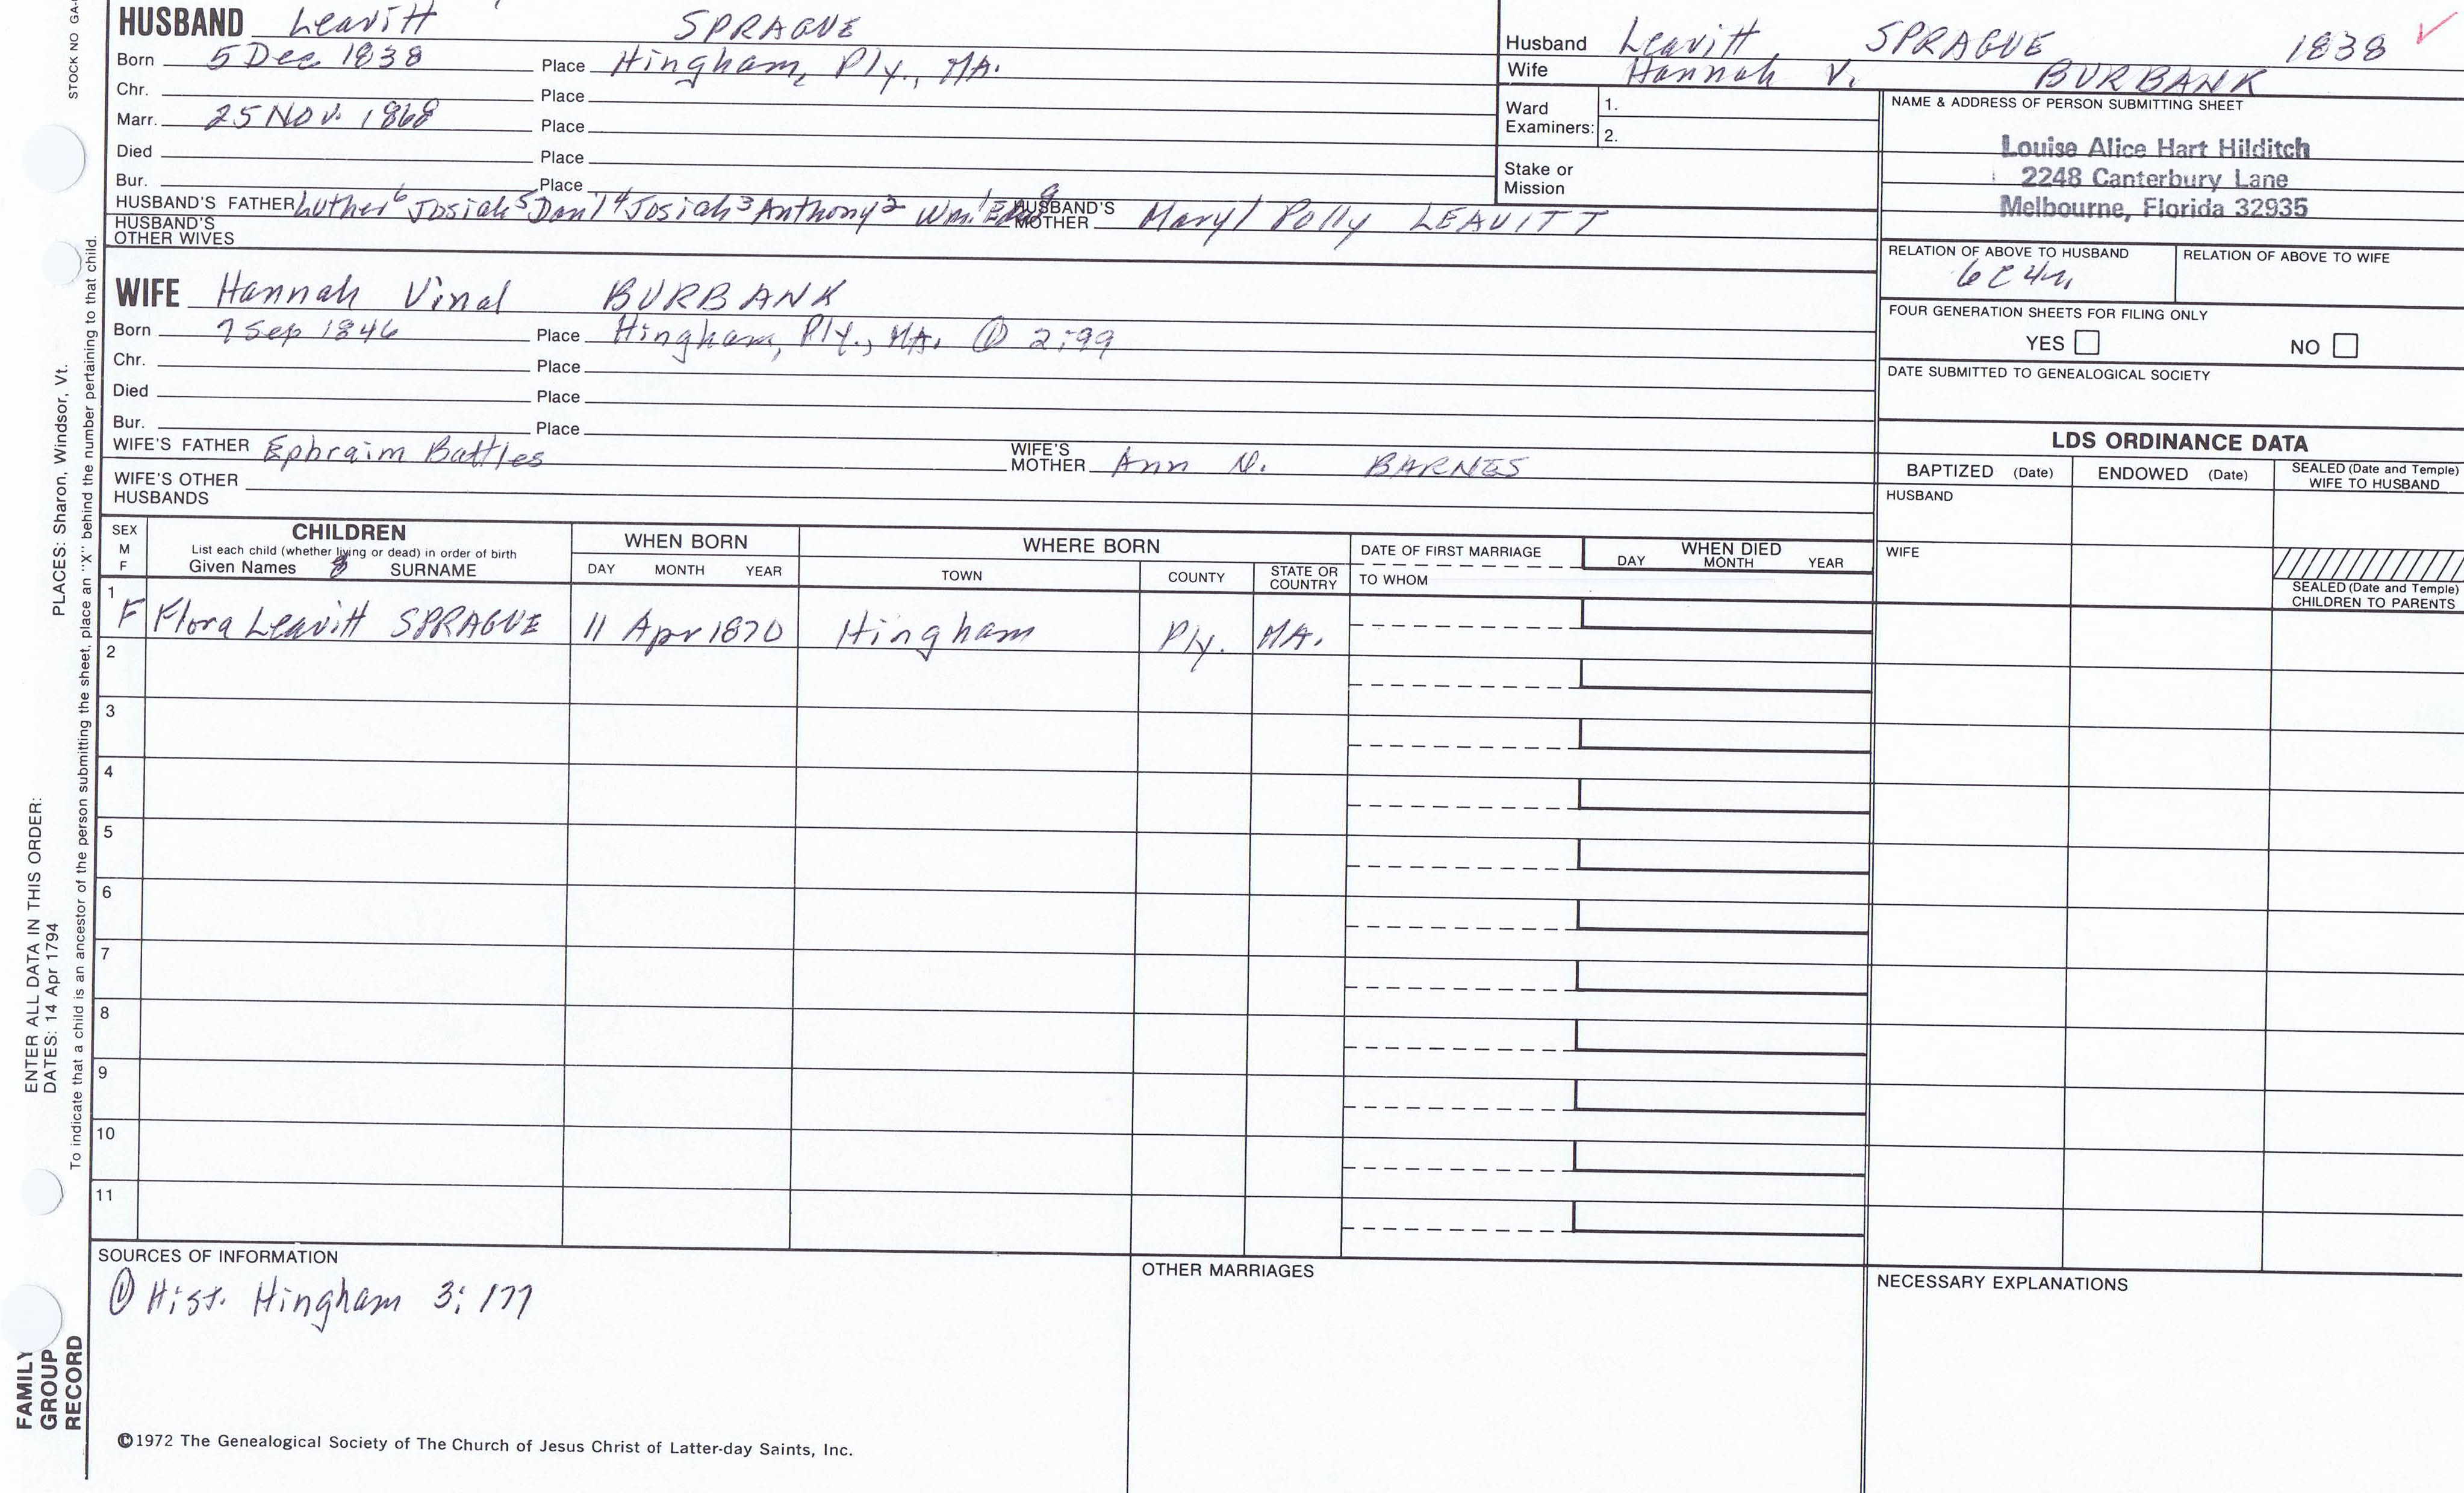 STOCK NO GA-
HUSBAND Leavitt SPRAGUE
Born 5 Dec. 1838 Place Hingham, Ply., MA.
Chr. Place
Marr. 25 NOV. 1868 Place
Died Place
Bur. Place
HUSBAND'S FATHER Luther⁶ Josiah⁵ Dan'l⁴ Josiah³ Anthony² Wm.¹ HUSBAND'S MOTHER Mary/Polly LEAVITT
HUSBAND'S OTHER WIVES
WIFE Hannah Vinal BURBANK
Born 7 Sep 1846 Place Hingham, Ply., MA. ① 2:99
Chr. Place
Died Place
Bur. Place
WIFE'S FATHER Ephraim Battles WIFE'S MOTHER Ann N. BARNES
WIFE'S OTHER HUSBANDS
Husband Leavitt SPRAGUE 1838 ✓
Wife Hannah V. BURBANK
Ward Examiners: 1.
2.
Stake or Mission
NAME & ADDRESS OF PERSON SUBMITTING SHEET
Louise Alice Hart Hilditch
2248 Canterbury Lane
Melbourne, Florida 32935
RELATION OF ABOVE TO HUSBAND RELATION OF ABOVE TO WIFE
6C4r
FOUR GENERATION SHEETS FOR FILING ONLY
YES NO
DATE SUBMITTED TO GENEALOGICAL SOCIETY
LDS ORDINANCE DATA
BAPTIZED (Date) ENDOWED (Date) SEALED (Date and Temple) WIFE TO HUSBAND
HUSBAND
WIFE
SEALED (Date and Temple) CHILDREN TO PARENTS
SEX M F
CHILDREN
List each child (whether living or dead) in order of birth
Given Names SURNAME
WHEN BORN
DAY MONTH YEAR
WHERE BORN
TOWN COUNTY STATE OR COUNTRY
DATE OF FIRST MARRIAGE
TO WHOM
WHEN DIED
DAY MONTH YEAR
1 F Flora Leavitt SPRAGUE 11 Apr 1870 Hingham Ply. MA.
2
3
4
5
6
7
8
9
10
11
SOURCES OF INFORMATION
① Hist. Hingham 3:177
OTHER MARRIAGES
NECESSARY EXPLANATIONS
©1972 The Genealogical Society of The Church of Jesus Christ of Latter-day Saints, Inc.
FAMILY GROUP RECORD
ENTER ALL DATA IN THIS ORDER:
DATES: 14 Apr 1794 PLACES: Sharon, Windsor, Vt.
To indicate that a child is an ancestor of the person submitting the sheet, place an "X" behind the number pertaining to that child.